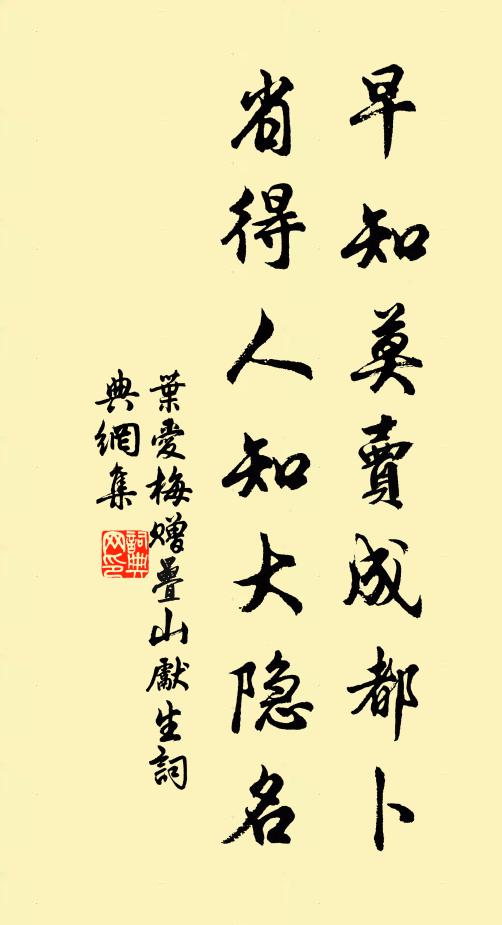 早知莫賣成都卜
省得人知大隐名
葉愛梅贈疊山獻生詞
典網集
詞典
网印